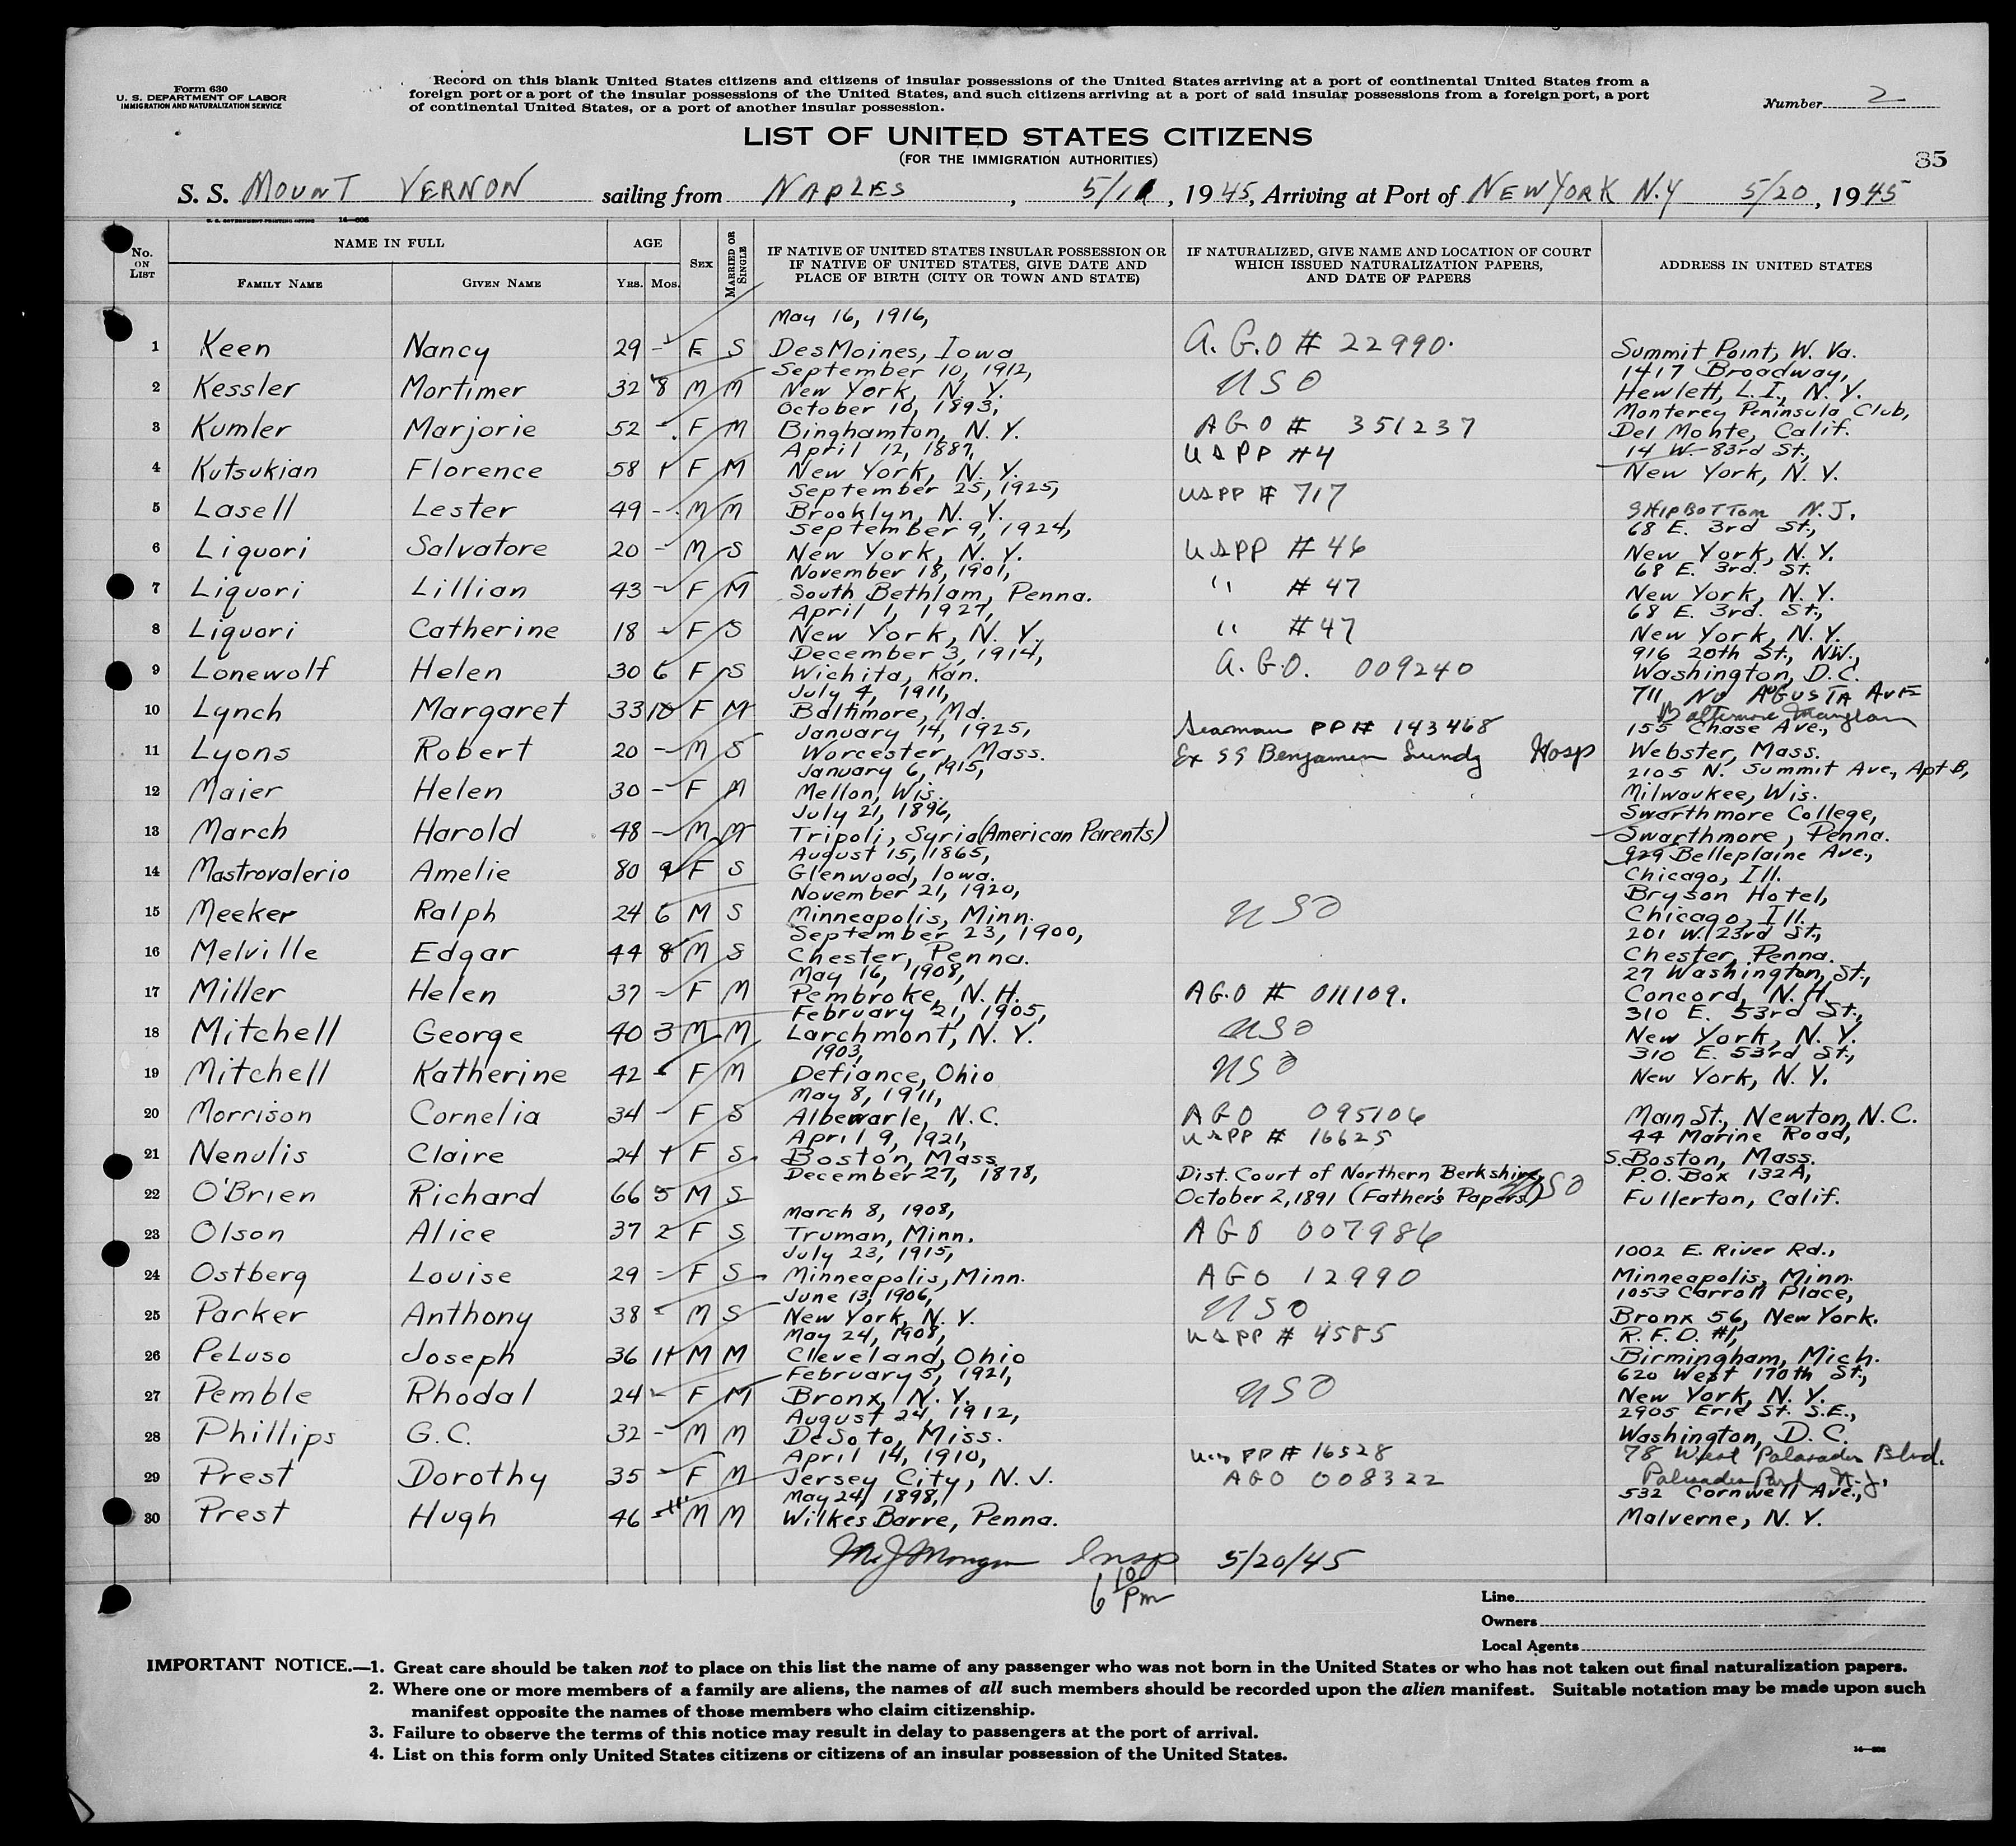 Form 630
U. S. DEPARTMENT OF LABOR
IMMIGRATION AND NATURALIZATION SERVICE
Record on this blank United States citizens and citizens of insular possessions of the United States arriving at a port of continental United States from a
foreign port or a port of the insular possessions of the United States, and such citizens arriving at a port of said insular possessions from a foreign port, a port
of continental United States, or a port of another insular possession.
Number 2
LIST OF UNITED STATES CITIZENS
(FOR THE IMMIGRATION AUTHORITIES)
85
S. S. MOUNT VERNON sailing from NAPLES, 5/11, 1945, Arriving at Port of NEW YORK N.Y 5/20, 1945
U. S. GOVERNMENT PRINTING OFFICE 14—606
No. ON LIST
NAME IN FULL
FAMILY NAME GIVEN NAME
AGE
YRS. MOS.
SEX
MARRIED OR SINGLE
IF NATIVE OF UNITED STATES INSULAR POSSESSION OR
IF NATIVE OF UNITED STATES, GIVE DATE AND
PLACE OF BIRTH (CITY OR TOWN AND STATE)
IF NATURALIZED, GIVE NAME AND LOCATION OF COURT
WHICH ISSUED NATURALIZATION PAPERS,
AND DATE OF PAPERS
ADDRESS IN UNITED STATES
May 16, 1916,
1 Keen Nancy 29 - F S Des Moines, Iowa A.G.O # 22990. Summit Point, W. Va.
September 10, 1912, 1417 Broadway,
2 Kessler Mortimer 32 8 M M New York, N. Y. USO Hewlett, L. I., N. Y.
October 10, 1893, Monterey Peninsula Club,
3 Kumler Marjorie 52 - F M Binghamton, N. Y. AGO # 351237 Del Monte, Calif.
April 12, 1887, 14 W- 83rd St.,
4 Kutsukian Florence 58 1 F M New York, N. Y. US PP #4 New York, N. Y.
September 25, 1925,
5 Lasell Lester 49 - M M Brooklyn, N. Y. US PP # 717 SHIPBOTTOM N.J.
September 9, 1924, 68 E. 3rd St.,
6 Liquori Salvatore 20 - M S New York, N. Y. US PP #46 New York, N. Y.
November 18, 1901, 68 E. 3rd. St.
7 Liquori Lillian 43 - F M South Bethlam, Penna. " #47 New York, N. Y.
April 1, 1927, 68 E. 3rd. St.,
8 Liquori Catherine 18 - F S New York, N. Y. " #47 New York, N. Y.
December 3, 1914, 916 20th St., NW.,
9 Lonewolf Helen 30 6 F S Wichita, Kan. A.G.O. 009240 Washington, D.C.
July 4, 1911, 711 No AUGUSTA AVE
10 Lynch Margaret 33 10 F M Baltimore, Md. Baltimore Maryland
January 14, 1925, Seaman PP# 143468 155 Chase Ave.,
11 Lyons Robert 20 - M S Worcester, Mass. Ex SS Benjamin Lundy Hosp Webster, Mass.
January 6, 1915, 2105 N. Summit Ave., Apt B,
12 Maier Helen 30 - F M Mellon, Wis. Milwaukee, Wis.
July 21, 1896, Swarthmore College,
13 March Harold 48 - M M Tripoli, Syria (American Parents) Swarthmore, Penna.
August 15, 1865, 929 Belleplaine Ave.,
14 Mastrovalerio Amelie 80 9 F S Glenwood, Iowa. Chicago, Ill.
November 21, 1920, Bryson Hotel,
15 Meeker Ralph 24 6 M S Minneapolis, Minn. USO Chicago, Ill.
September 23, 1900, 201 W. 23rd St.,
16 Melville Edgar 44 8 M S Chester, Penna. Chester, Penna.
May 16, 1908, 27 Washington, St.,
17 Miller Helen 37 - F M Pembroke, N. H. AG.O # 011109. Concord, N. H.
February 21, 1905, 310 E. 53rd St.,
18 Mitchell George 40 3 M M Larchmont, N. Y. USO New York, N. Y.
1903, 310 E. 53rd St.,
19 Mitchell Katherine 42 - F M Defiance, Ohio USO New York, N. Y.
May 8, 1911,
20 Morrison Cornelia 34 - F S Albemarle, N.C. AGO 095106 Main St., Newton, N.C.
April 9, 1921, US PP # 16625 44 Marine Road,
21 Nenulis Claire 24 1 F S Boston, Mass S. Boston, Mass.
December 27, 1878, Dist. Court of Northern Berkshire P.O. Box 132A,
22 O'Brien Richard 66 5 M S October 2, 1891 (Father's Papers) USO Fullerton, Calif.
March 8, 1908,
23 Olson Alice 37 2 F S Truman, Minn. AGO 007986
July 23, 1915, 1002 E. River Rd.,
24 Ostberg Louise 29 - F S Minneapolis, Minn. AGO 12990 Minneapolis, Minn.
June 13, 1906, 1053 Carroll Place,
25 Parker Anthony 38 - M S New York, N. Y. USO Bronx 56, New York.
May 24, 1908, US PP # 4585 R. F. D. #1,
26 PeLuso Joseph 36 11 M M Cleveland, Ohio Birmingham, Mich.
February 5, 1921, 620 West 170th St.,
27 Pemble Rhodal 24 - F M Bronx, N. Y. USO New York, N. Y.
August 24, 1912, 2905 Erie St. S.E.,
28 Phillips G.C. 32 - M M DeSoto, Miss. Washington, D. C.
April 14, 1910, US PP# 16528 78 West Palasades Blvd.
29 Prest Dorothy 35 - F M Jersey City, N. J. AGO 008322 Palisades Park N. J.
May 24, 1898, 532 Cornwell Ave.,
30 Prest Hugh 46 M M Wilkes Barre, Penna. Malverne, N. Y.
Insp 5/20/45
6 10 Pm
Line
Owners
Local Agents
IMPORTANT NOTICE.—1. Great care should be taken not to place on this list the name of any passenger who was not born in the United States or who has not taken out final naturalization papers.
2. Where one or more members of a family are aliens, the names of all such members should be recorded upon the alien manifest. Suitable notation may be made upon such
manifest opposite the names of those members who claim citizenship.
3. Failure to observe the terms of this notice may result in delay to passengers at the port of arrival.
4. List on this form only United States citizens or citizens of an insular possession of the United States.
14—606